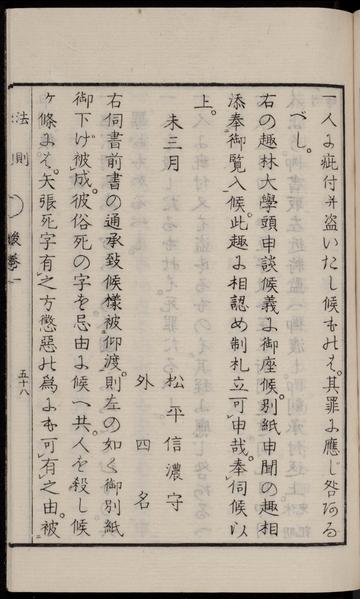 一人ニ疵付并盗いたし候ものハ。其罪ニ應し咎可有る
べし。
右の趣林大學頭申談候義ニ御座候。別紙申聞の趣相
添奉御覧入候。此趣ニ相認め制札立可申哉。奉伺候以
上。
未三月　松平信濃守
外四名
右伺書前書の通承致候様被仰渡。則左の如く御別紙
御下げ被成。彼俗死の字を忌由ニ候へ共。人を殺し候
ヶ條ニハ。矢張死字有之方懲惡の爲にも可有之由。被
法則
後巻一
五十八